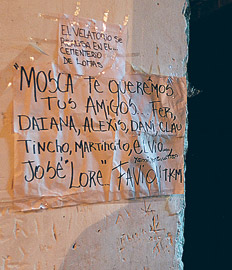 EL VELATORIO SE
REALIZA EN EL
CEMENTERIO
DE LOMAS
"MOSCA TE QUEREMOS
TUS AMIGOS. FER,
DAIANA, ALEXIS, DANI, CLAU
TINCHO, MARTINCITO, ELVIO
JOSÉ "LORE" FAVIO TKM